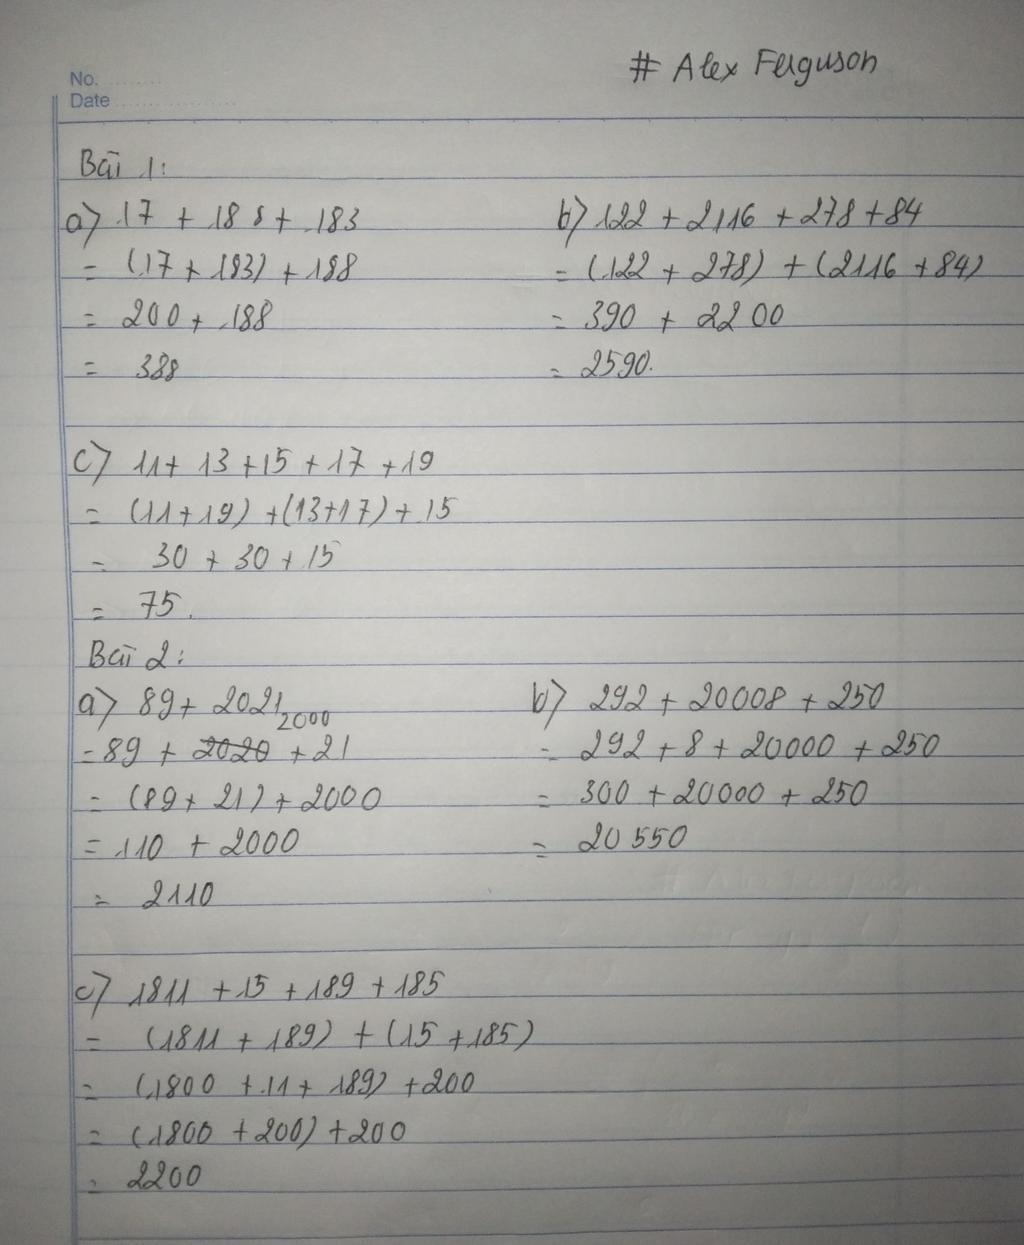 # Alex Ferguson
No.
Date
Bài 1:
a) 17 + 188 + 183
= (17 + 183) + 188
= 200 + 188
= 388
b) 122 + 2116 + 278 + 84
= (122 + 278) + (2116 + 84)
= 390 + 2200
= 2590.
c) 11 + 13 + 15 + 17 + 19
= (11 + 19) + (13 + 17) + 15
= 30 + 30 + 15
= 75.
Bài 2:
a) 89 + 2021
2000
= 89 + 2020 + 21
= (89 + 21) + 2000
= 110 + 2000
= 2110
b) 292 + 20008 + 250
= 292 + 8 + 20000 + 250
= 300 + 20000 + 250
= 20 550
c) 1811 + 15 + 189 + 185
= (1811 + 189) + (15 + 185)
= (1800 + 11 + 189) + 200
= (1800 + 200) + 200
= 2200